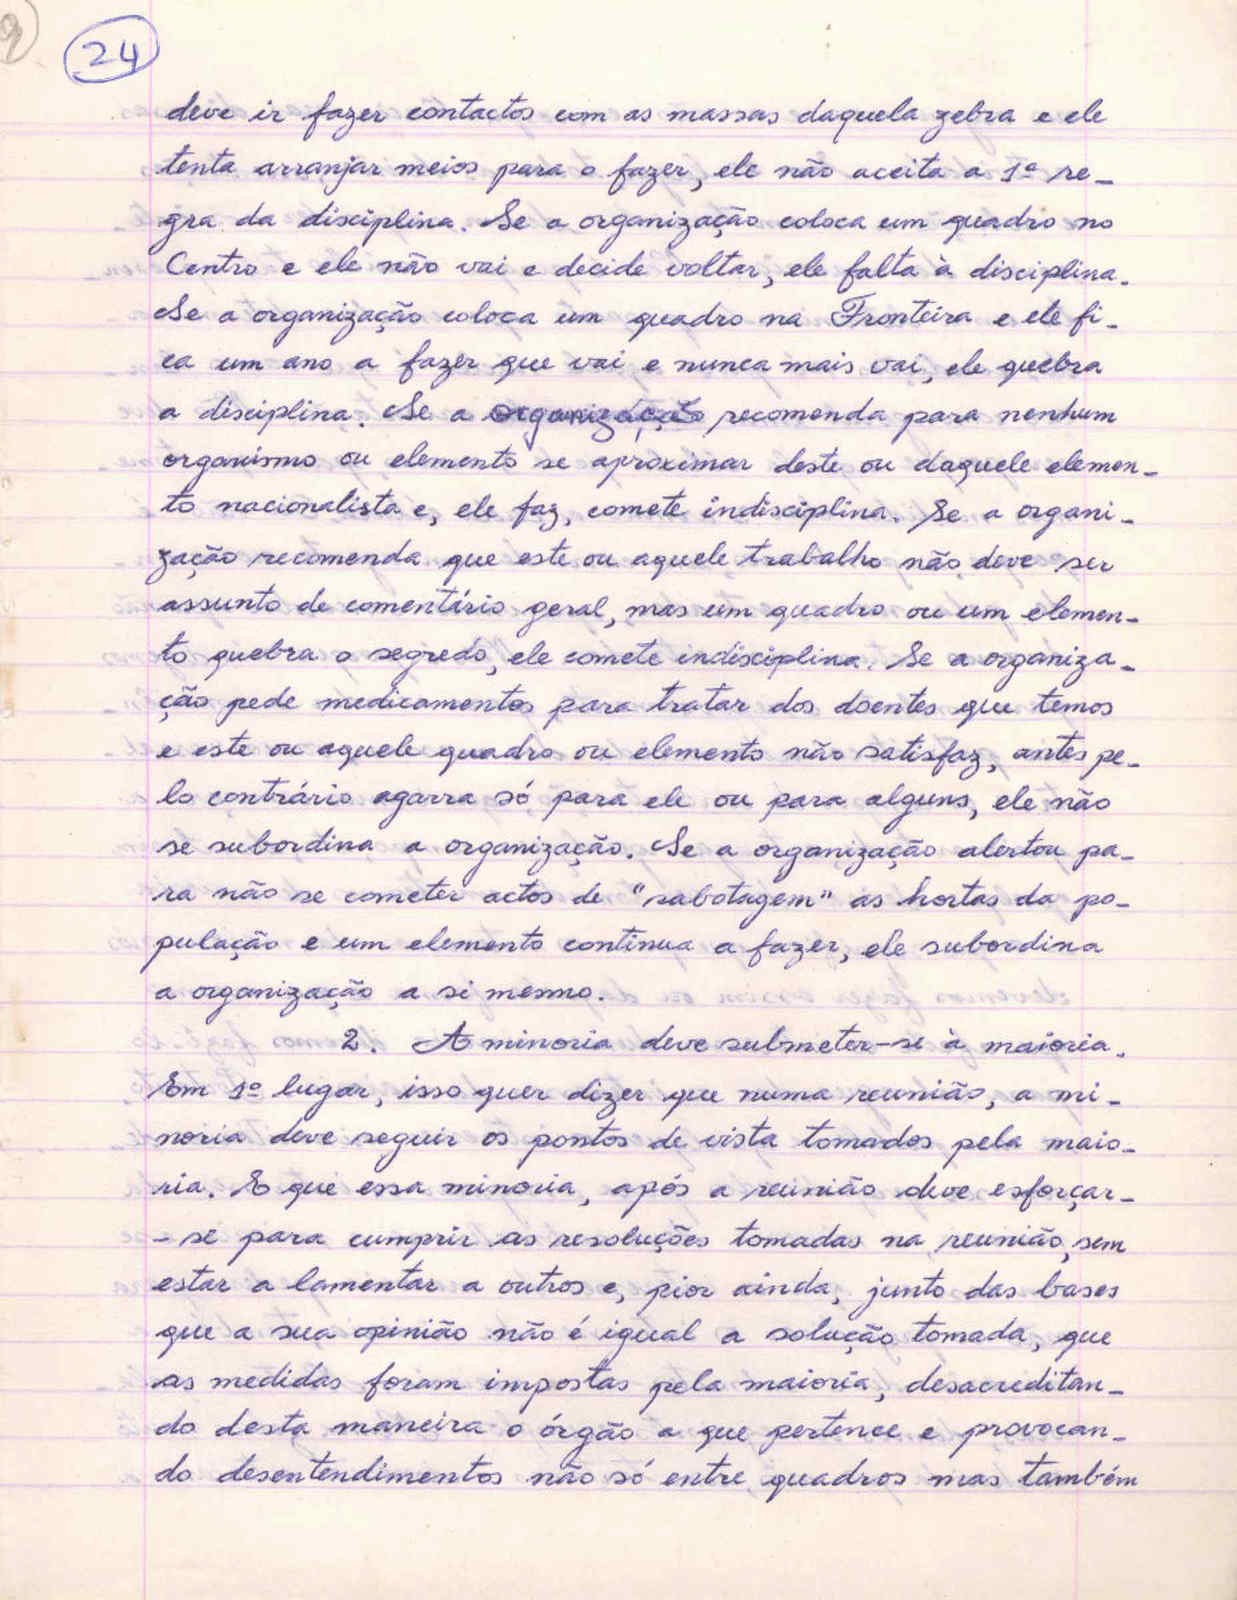 24
deve ir fazer contactos com as massas daquela zebra e ele
tenta arranjar meios para o fazer, ele não aceita a 1ª re-
gra da disciplina. Se a organização coloca um quadro no
Centro e ele não vai e decide voltar, ele falta à disciplina.
Se a organização coloca um quadro na Fronteira e ele fi-
ca um ano a fazer que vai e nunca mais vai, ele quebra
a disciplina. Se a organização recomenda para nenhum
organismo ou elemento se aproximar deste ou daquele elemen-
to nacionalista e, ele faz, comete indisciplina. Se a organi-
zação recomenda que este ou aquele trabalho não deve ser
assunto de comentário geral, mas um quadro ou um elemen-
to quebra o segredo, ele comete indisciplina. Se a organiza-
ção pede medicamentos para tratar dos doentes que temos
e este ou aquele quadro ou elemento não satisfaz, antes pe-
lo contrário agarra só para ele ou para alguns, ele não
se subordina a organização. Se a organização alertou pa-
ra não se cometer actos de "sabotagem" as hortas da po-
pulação e um elemento continua a fazer, ele subordina
a organização a si mesmo.
2. A minoria deve submeter-se à maioria.
Em 1º lugar, isso quer dizer que numa reunião, a mi-
noria deve seguir os pontos de vista tomados pela maio-
ria. E que essa minoria, após a reunião deve esforçar-
-se para cumprir as resoluções tomadas na reunião, sem
estar a lamentar a outros e, pior ainda, junto das bases
que a sua opinião não é igual a solução tomada, que
as medidas foram impostas pela maioria, desacreditan-
do desta maneira o órgão a que pertence e provocan-
do desentendimentos não só entre quadros mas também